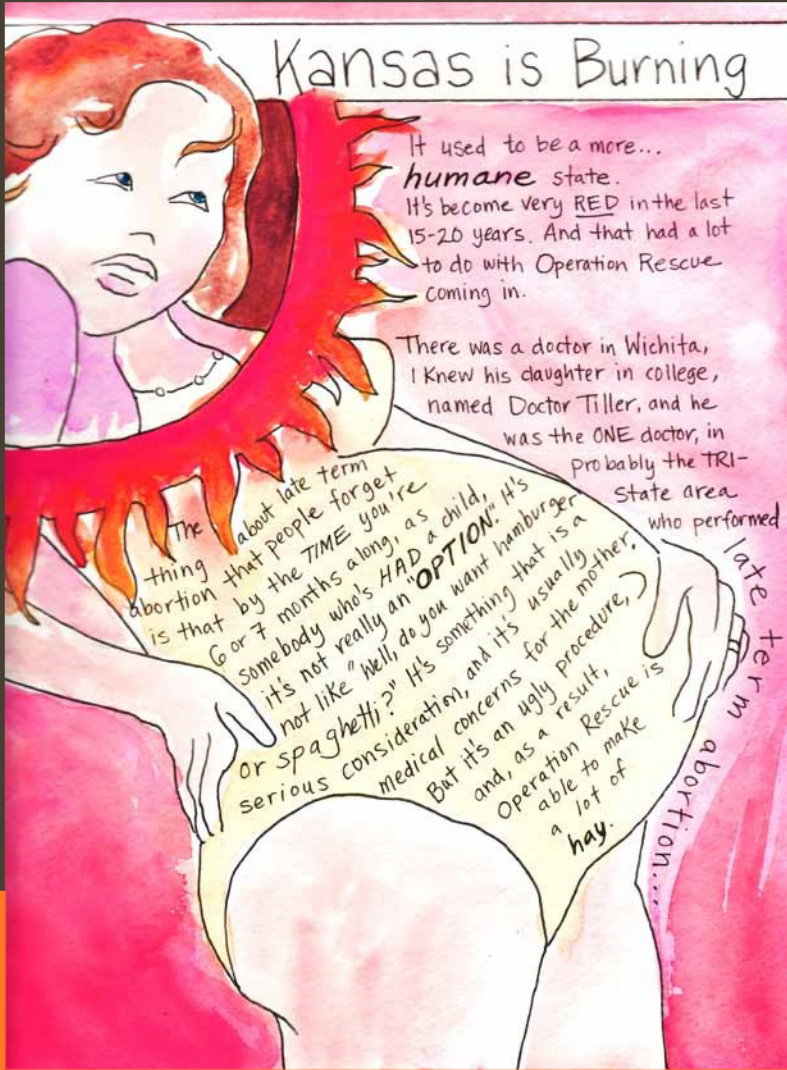 Kansas is Burning
It used to be a more...
humane state.
It's become very RED in the last
15-20 years. And that had a lot
to do with Operation Rescue
coming in.
There was a doctor in Wichita,
I knew his daughter in college,
named Doctor Tiller, and he
was the ONE doctor, in
probably the TRI-
State area
who performed
late term abortion...
The
thing about late term
abortion that people forget
is that by the TIME you're
6 or 7 months along, as
somebody who's HAD a child,
it's not really an "OPTION." It's
not like "Well, do you want hamburger
or spaghetti?" It's something that is a
serious consideration, and it's usually
medical concerns for the mother.
But it's an ugly procedure,
and, as a result,
Operation Rescue is
able to make
a lot of
hay.